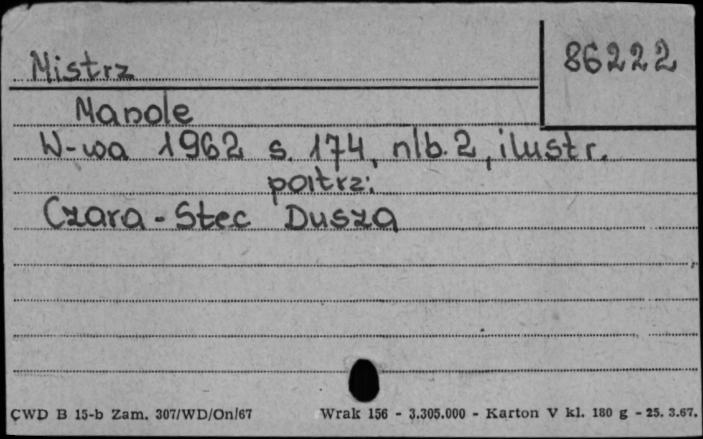 86222
Mistrz
Manole
W-wa 1962 s. 174, nlb. 2, ilustr.
patrz:
Czara-Stec Dusza
CWD B 15-b Zam. 307/WD/On/67 Wrak 156 - 3.305.000 - Karton V kl. 180 g - 25. 3.67.